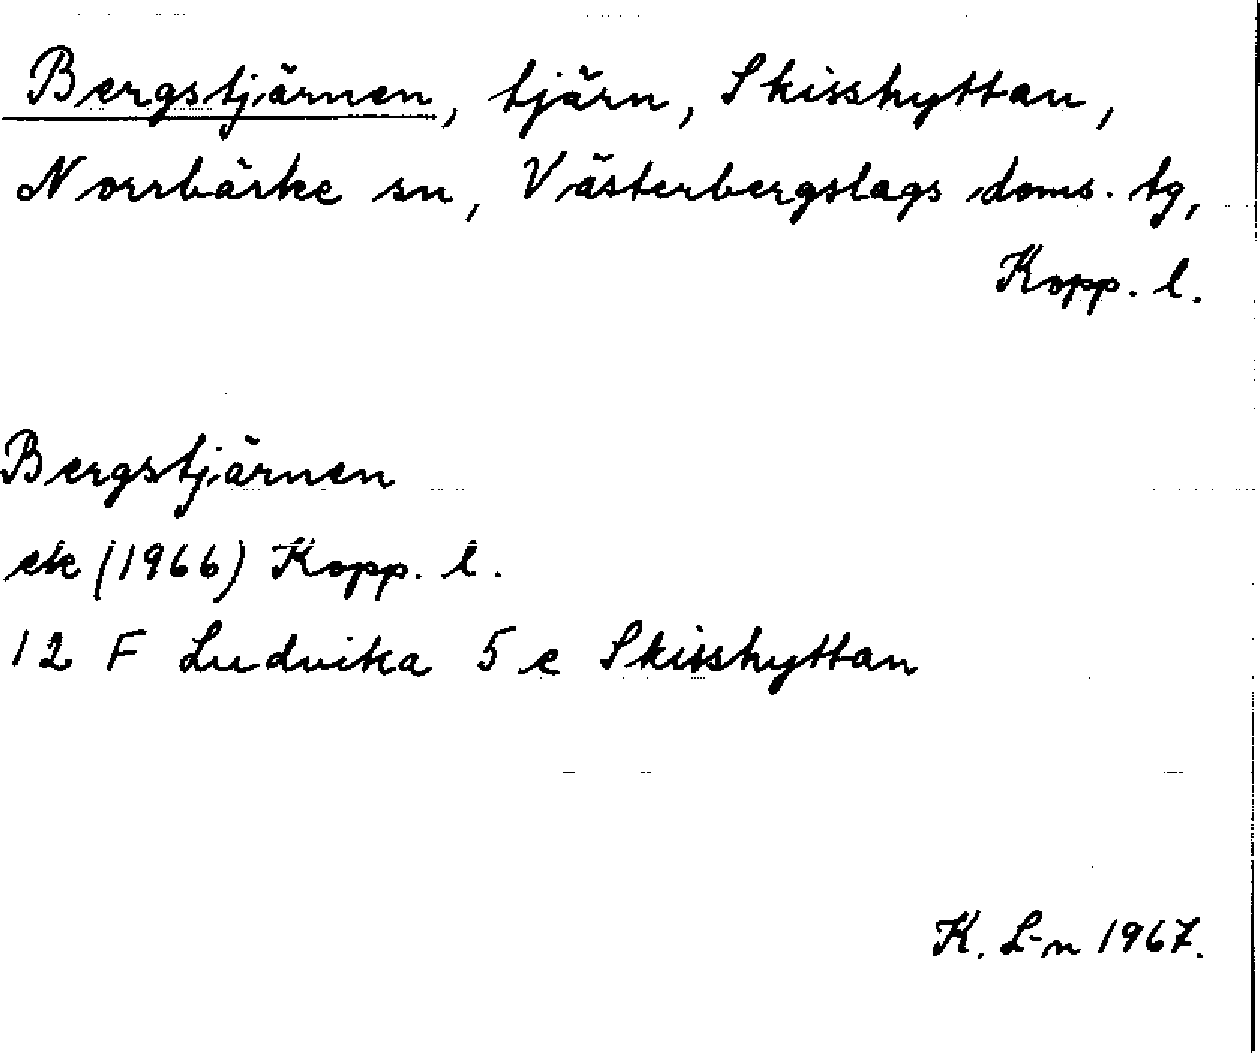 Bergstjärnen, tjärn, Skisshyttan,
Norrbärke sn, Västerbergslags doms. tg,
Kopp. l.
Bergstjärnen
ek (1966) Kopp. l.
12 F Ludvika 5 e Skisshyttan
K. L-n 1967.